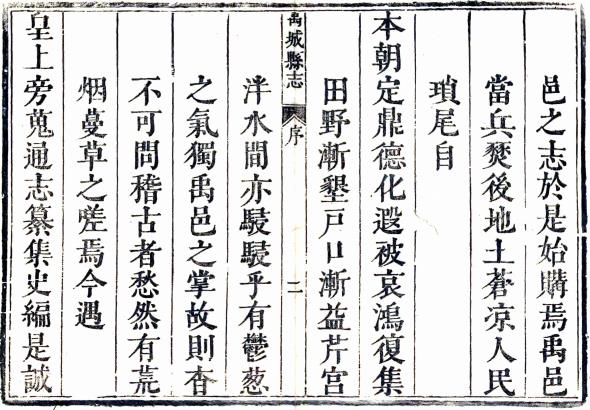 邑之志於是始購焉禹邑
當兵燹後地土蒼凉人民
瑣尾自
本朝定鼎德化遐被哀鴻復集
田野漸墾戸口漸益芹宮
禹城縣志
序
二
泮水間亦駸駸乎有鬱葱
之氣獨禹邑之掌故則杳
不可問稽古者愁然有荒
烟蔓草之嗟焉今遇
皇上旁蒐通志纂集史編是誠